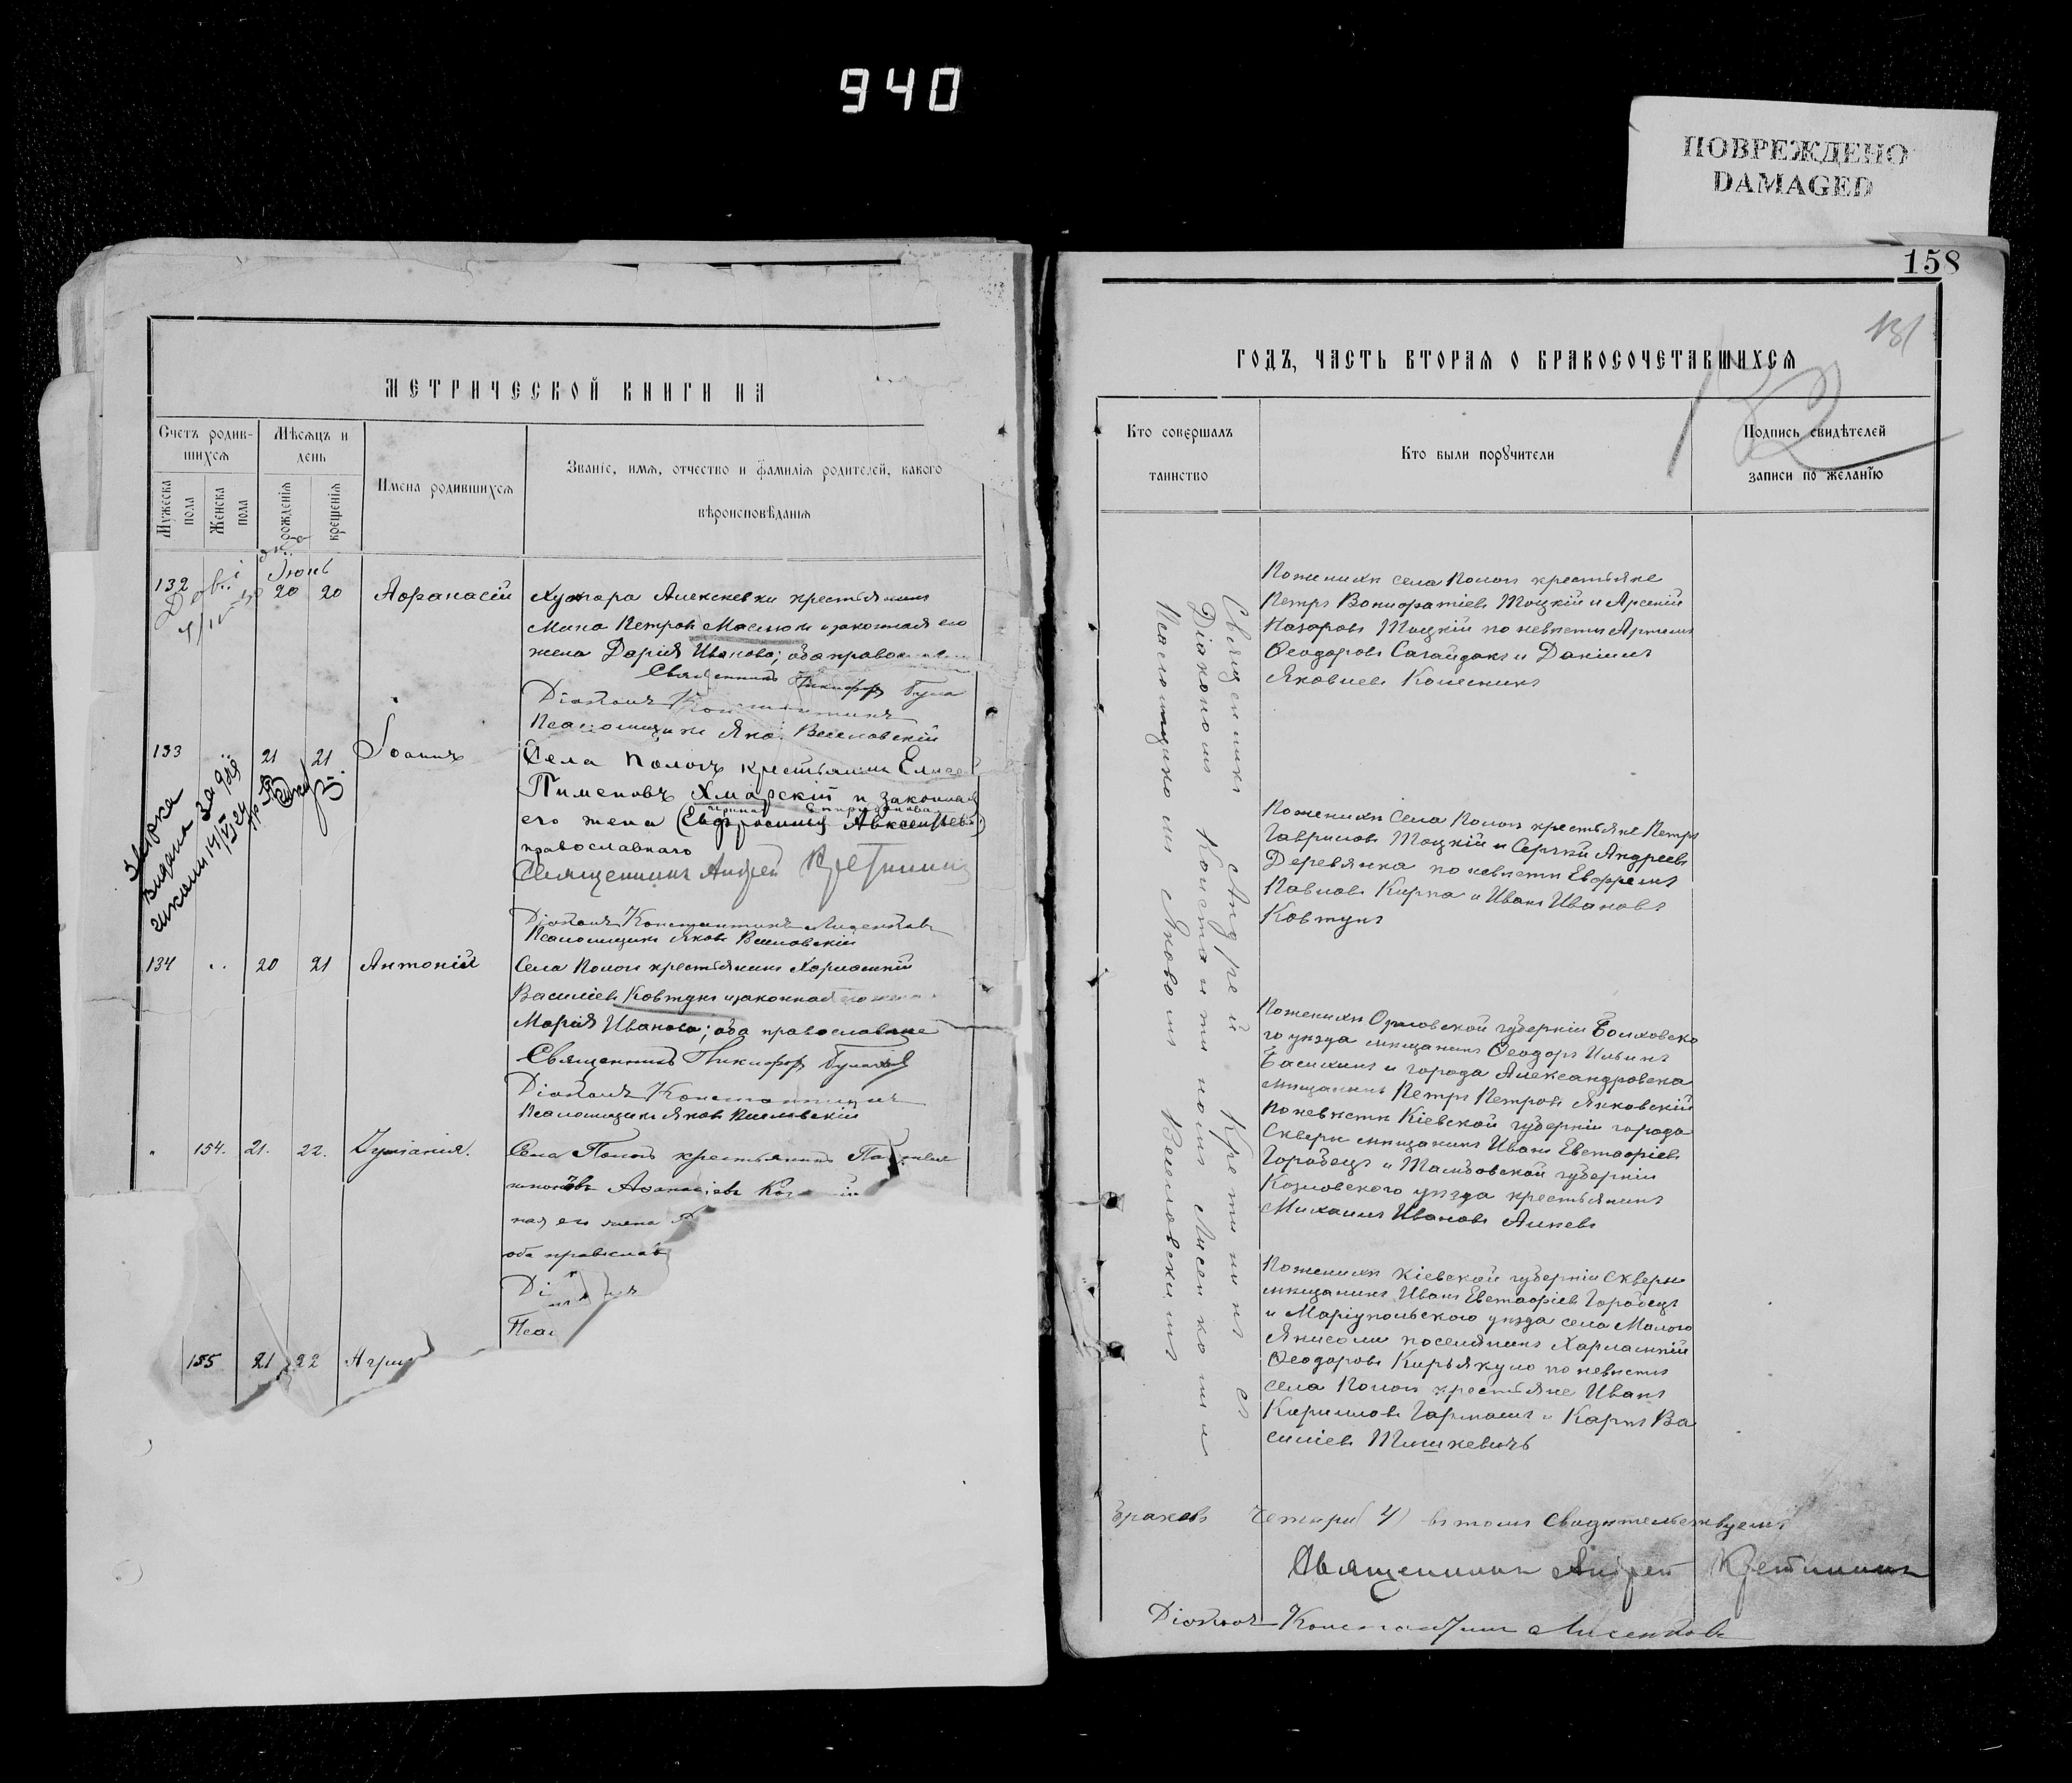 940
ПОВРЕЖДЕНО
DAMAGED
МЕТРИЧЕСКОЙ КНИГИ НА
Счетъ родив-
шихся
Мѣсяцъ и
день
Мужеска
пола
Женска
пола
рожденія
крещенія
Имена родившихся
Званіе, имя, отчество и фамилія родителей, какого
вѣроисповѣданія
Іюнь
132 20 20 Афанасій
Хутора Алексеевки крестьянинъ
Мина Петровъ Маслюкъ и законная его
жена Дарія Иванова; оба православ
Священникъ Никифоръ
Діаконъ Константинъ
Псаломщикъ Яков Веселовскій
133 21 21 Іоаннъ
Села Пологъ крестьянинъ Елисей
Пименовъ Хмарскій и законная
Ирина Спиридонова
его жена (Евфросинія Авксентьева)
православнаго
Священникъ Андрей Кретининъ
Діаконъ Константинъ Лисенковъ
Псаломщикъ Яковъ Веселовскій
134 20 21 Антоній
Села Пологъ крестьянинъ Харлампій
Василіевъ Ковтунъ и законная его жена
Марія Иванова; оба православные
Священникъ Никифоръ
Діаконъ Константинъ
Псаломщикъ Яковъ Веселовскій
154. 21. 22. Домникія.
Села Пологъ крестьянинъ
Афанасіевъ
ная его жена
оба православ
Ді
Псал
155 21 22 Агрип
158
131
132
ГОДЪ, ЧАСТЬ ВТОРАЯ О БРАКОСОЧЕТАВШИХСЯ
Кто совершалъ
таинство
Кто были поручители
Подпись свидѣтелей
записи по желанію
Священникъ Андрей Кретининъ съ
Діакономъ Константиномъ Лисенкомъ и
Псаломщикомъ Яковомъ Веселовскимъ
По женихѣ села Пологъ крестьяне
Петръ Вонифатіевъ Тоцкій и Арсеній
Назаровъ Тоцкій по невѣсте Артемъ
Феодоровъ Сагайдакъ и Даніилъ
Яковлевъ Колесникъ
По женихѣ села Пологъ крестьяне Петръ
Гавриловъ Тоцкій и Сергѣй Андреевъ
Деревянка по невѣсте Ефремъ
Павловъ Кирпа и Иванъ Ивановъ
Ковтунъ
По женихѣ Орловской губерніи Болховско
го уѣзда мѣщанинъ Феодоръ Ильинъ
Басихинъ и города Александровска
мѣщанинъ Петръ Петровъ Янковскій
по невѣсте Кіевской губерніи города
Сквери мѣщанинъ Иванъ Евстафіевъ
Горобецъ и Тамбовской губерніи
Козловского уѣзда крестьянинъ
Михаилъ Ивановъ
По женихѣ Кіевской губерніи Сквери
мѣщанинъ Иванъ Евстафіевъ Горобецъ
и Маріупольского уѣзда села Малого
Янисоли поселянинъ Харлампій
Феодоровъ Кирьякуло по невѣсте
села Пологъ крестьяне Иванъ
Кирилловъ Гармашъ и Карпъ Ва
силіевъ Тишкевичъ
Браковъ четыре (4) въ томъ свидѣтельствуемъ
Священникъ Андрей Кретининъ
Діаконъ Константинъ Лисенковъ